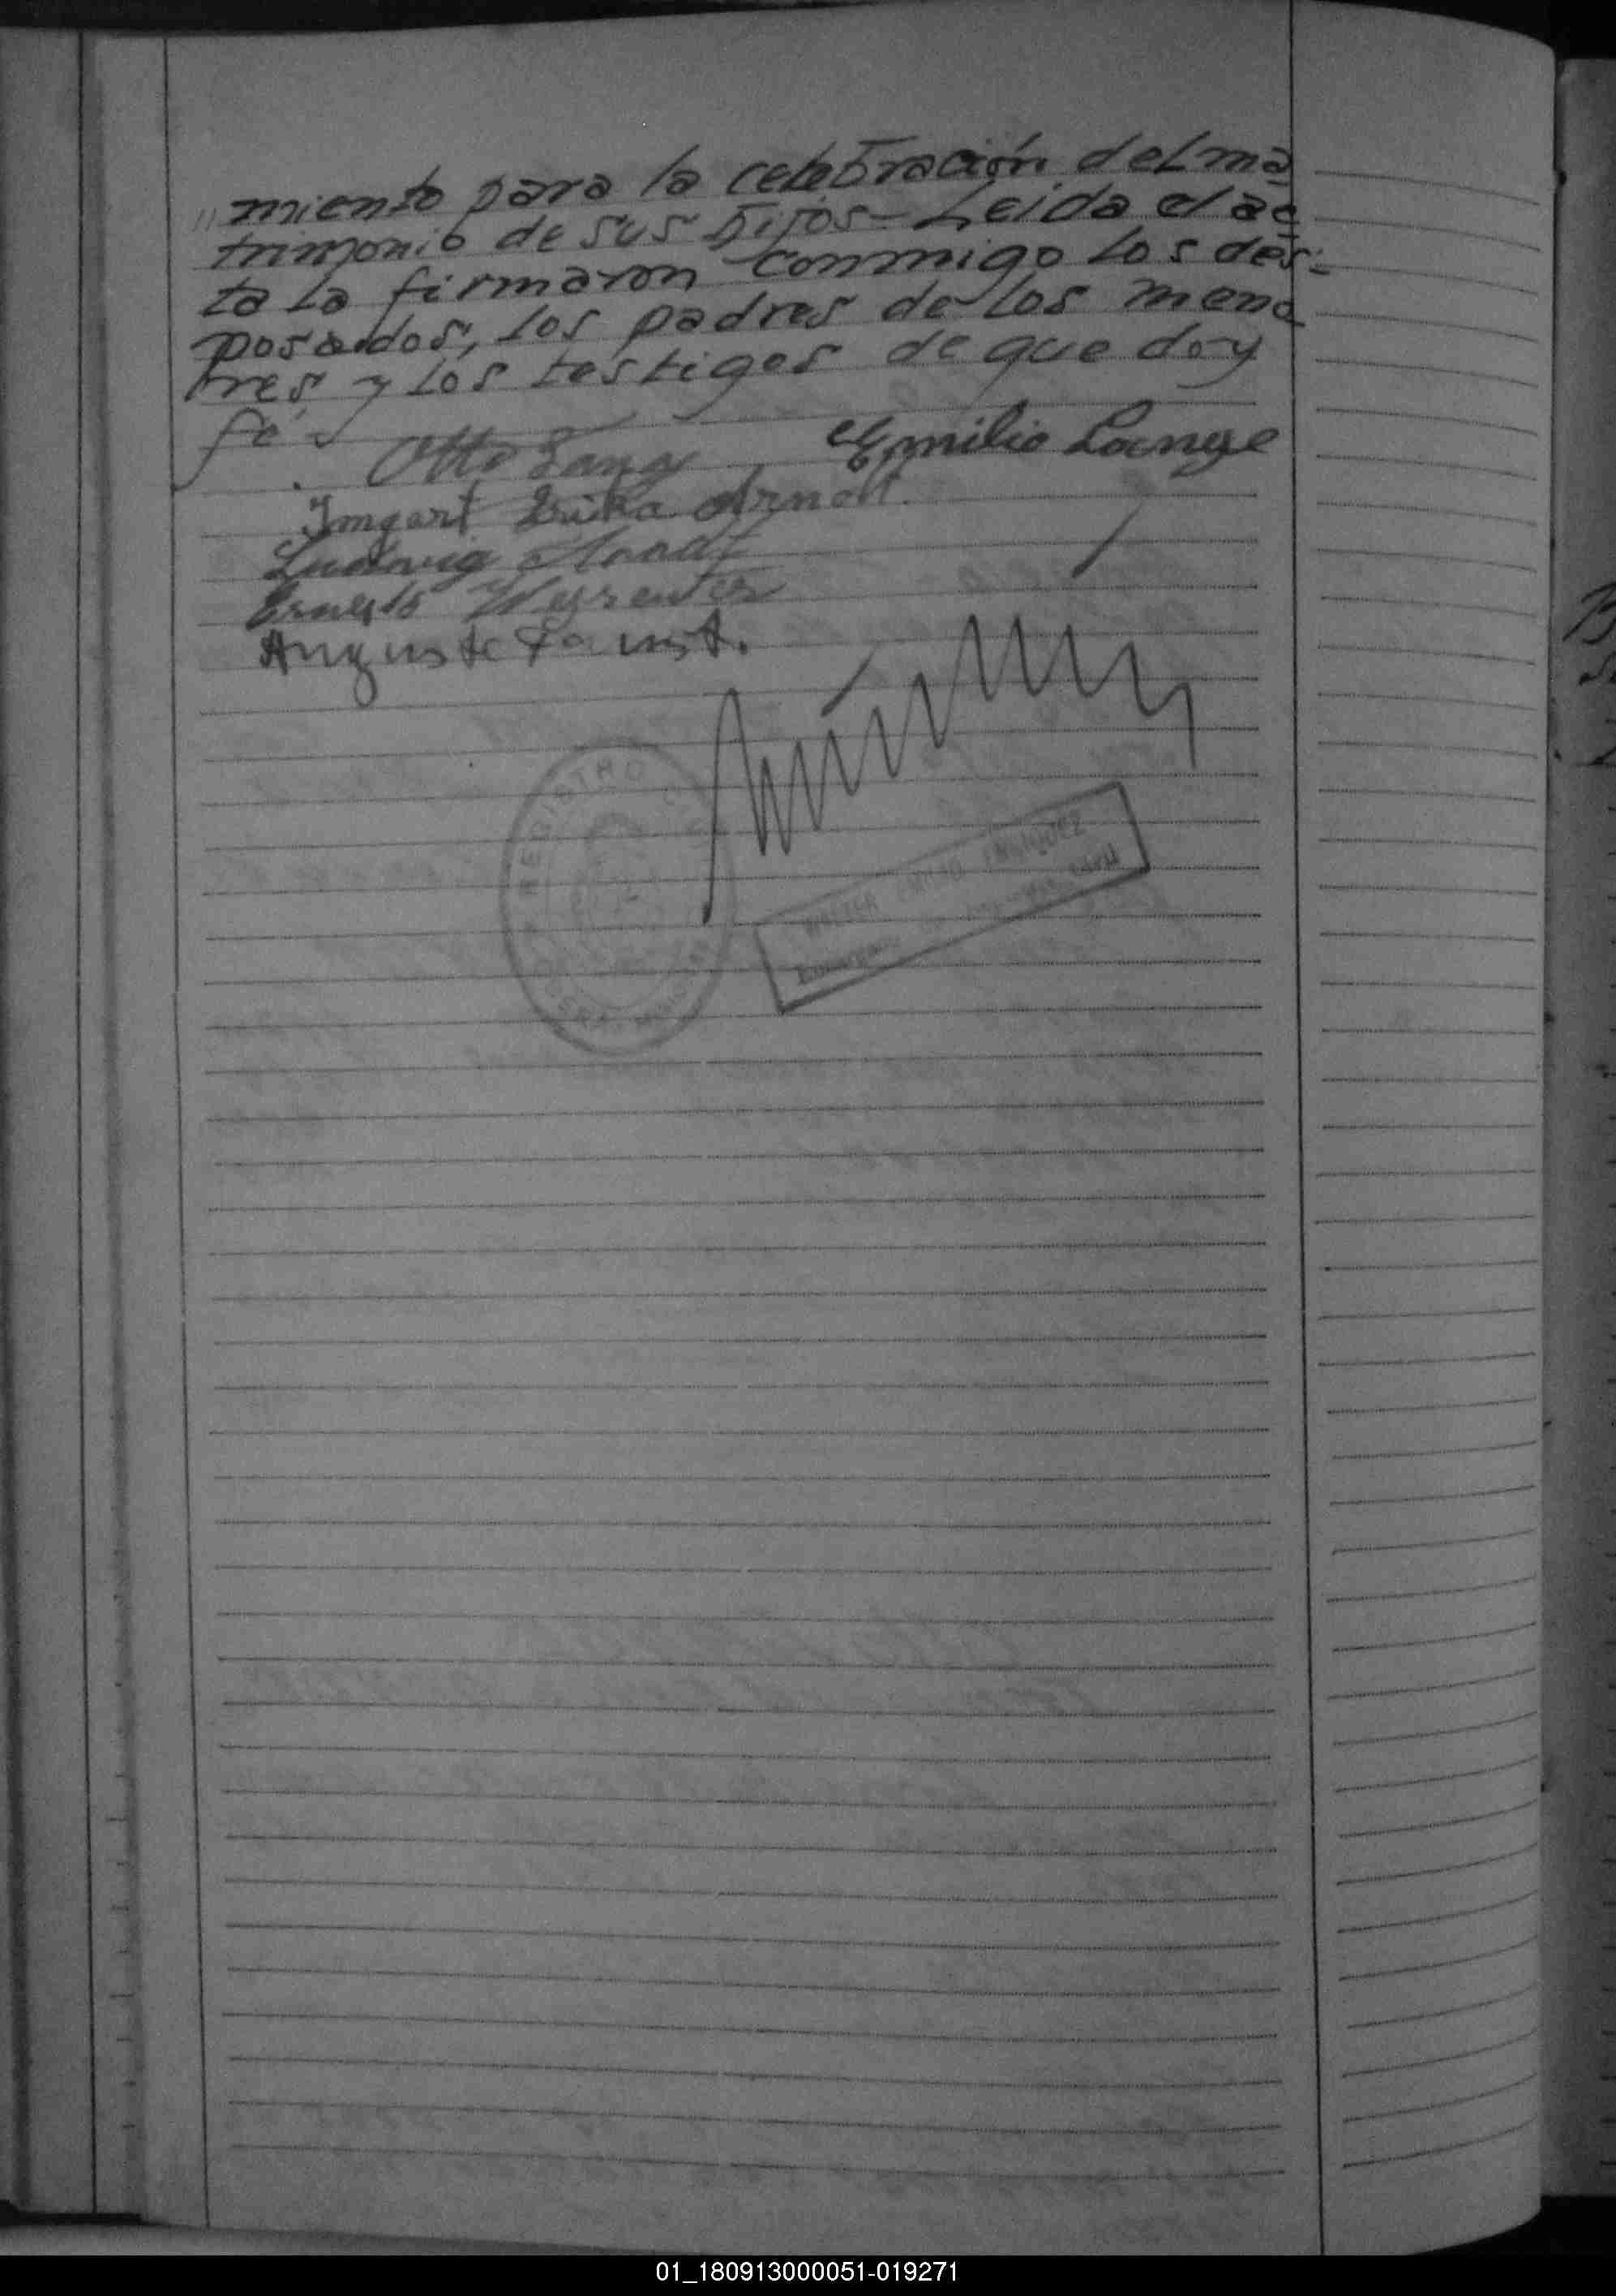 miento para la celebración del ma
trimonio de sus hijos - Leida el ac
ta la firmaron conmigo los des-
posados, los padres de los meno
res y los testigos de que doy
fé -
Otto Lang Emilio Lange
Imgart Erika Arnolt.
Ludwig
Ernesto
Auguste Faust.
REGISTRO
ENRIQUEZ
01_180913000051-019271